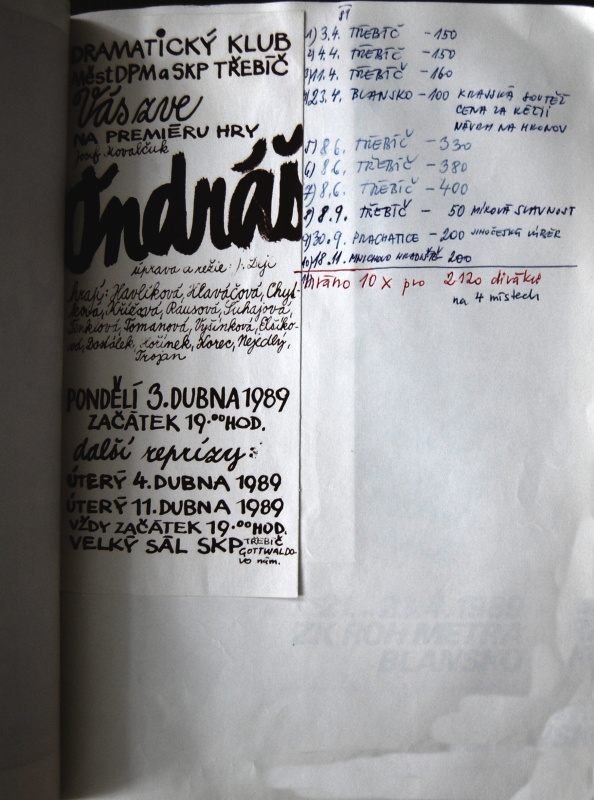 DRAMATICKÝ KLUB
MěstDPM a SKP TŘEBÍČ
Vás zve
NA PREMIÉRU HRY
Josef Kovalčuk
Ondráš
úprava a režie: J. Dejl
hrají: Havlíková, Hlaváčová, Chyt-
ková, Křížová, Rausová, Suhajová,
Tomanová, Vyšínková,
Dostálek, Kořínek, Korec, Nejedlý,
Trojan
PONDĚLÍ 3. DUBNA 1989
ZAČÁTEK 19.00 HOD.
další reprízy:
ÚTERÝ 4. DUBNA 1989
ÚTERÝ 11. DUBNA 1989
VŽDY ZAČÁTEK 19.00 HOD.
VELKÝ SÁL SKP TŘEBÍČ
GOTTWALDO-
VO nám.
89
1) 3.4. TŘEBÍČ - 150
2) 4.4. TŘEBÍČ - 150
3) 11.4. TŘEBÍČ - 160
4) 23.4. BLANSKO - 100 KRAJSKÁ SOUTĚŽ
CENA ZA REŽII
NÁVRH NA HRONOV
5) 8.6. TŘEBÍČ - 330
6) 8.6. TŘEBÍČ - 380
7) 8.6. TŘEBÍČ - 400
8) 8.9. TŘEBÍČ - 50 MÍROVÁ SLAVNOST
9) 30.9. PRACHATICE - 200 JIHOČESKÝ VÝBĚR
10) 18.11. MNICHOVO HRADIŠTĚ 200
Hráno 10 x pro 2120 diváků
na 4 místech
ZK ROH METRA
BLANSKO